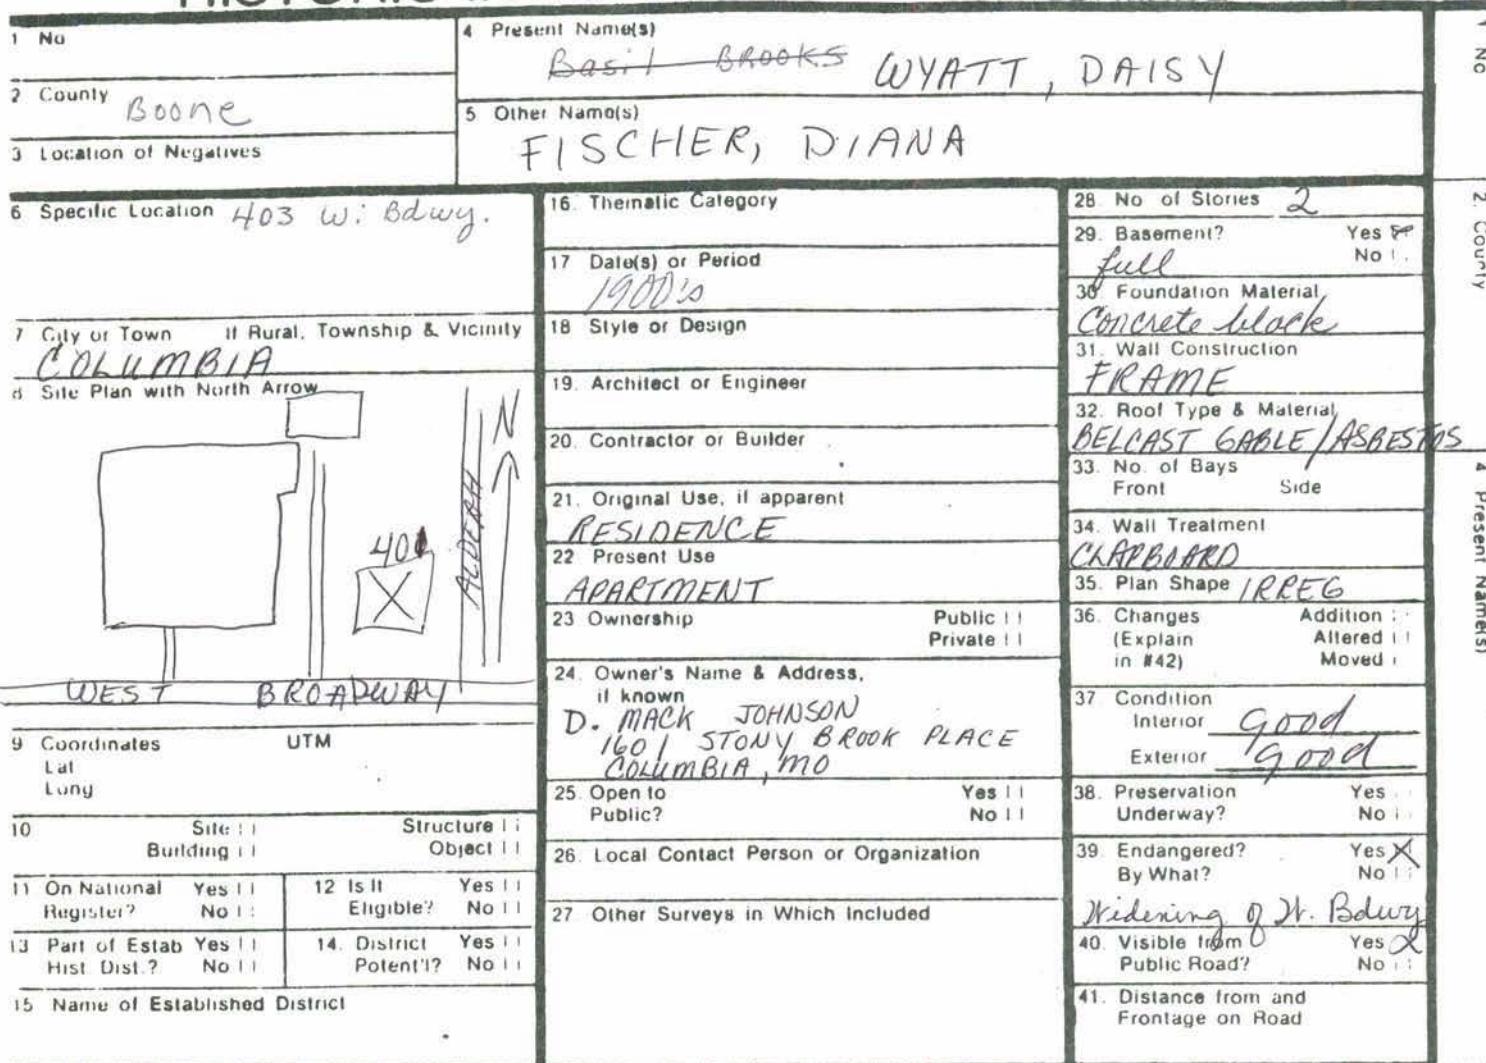 1 No
4 Present Name(s)
Basil BROOKS WYATT, DAISY
2 County Boone
5 Other Name(s)
FISCHER, DIANA
3 Location of Negatives
6 Specific Location 403 W. Bdwy.
7 City or Town If Rural, Township & Vicinity
COLUMBIA
8 Site Plan with North Arrow
N
401
WEST BROADWAY
9 Coordinates UTM
Lat
Long
10 Site Structure
Building Object
11 On National Register? Yes No
12 Is It Eligible? Yes No
13 Part of Estab Hist. Dist.? Yes No
14. District Potent'l? Yes No
15 Name of Established District
16. Thematic Category
17 Date(s) or Period
1900's
18 Style or Design
19. Architect or Engineer
20. Contractor or Builder
21. Original Use, if apparent
RESIDENCE
22 Present Use
APARTMENT
23 Ownership Public
Private
24. Owner's Name & Address,
if known
D. MACK JOHNSON
1601 STONY BROOK PLACE
COLUMBIA, MO
25. Open to Yes
Public? No
26. Local Contact Person or Organization
27 Other Surveys in Which Included
28. No of Stories 2
29. Basement? Yes
full No
30 Foundation Material
Concrete block
31. Wall Construction
FRAME
32. Roof Type & Material
BELCAST GABLE/ASBESTOS
33. No. of Bays
Front Side
34. Wall Treatment
CLAPBOARD
35. Plan Shape IRREG
36. Changes Addition
(Explain Altered
in #42) Moved
37 Condition
Interior Good
Exterior Good
38. Preservation Yes
Underway? No
39. Endangered? Yes X
By What? No
Widening of W. Bdwy
40. Visible from Yes
Public Road? No
41. Distance from and
Frontage on Road
1 No
2. County
4 Present Name(s)